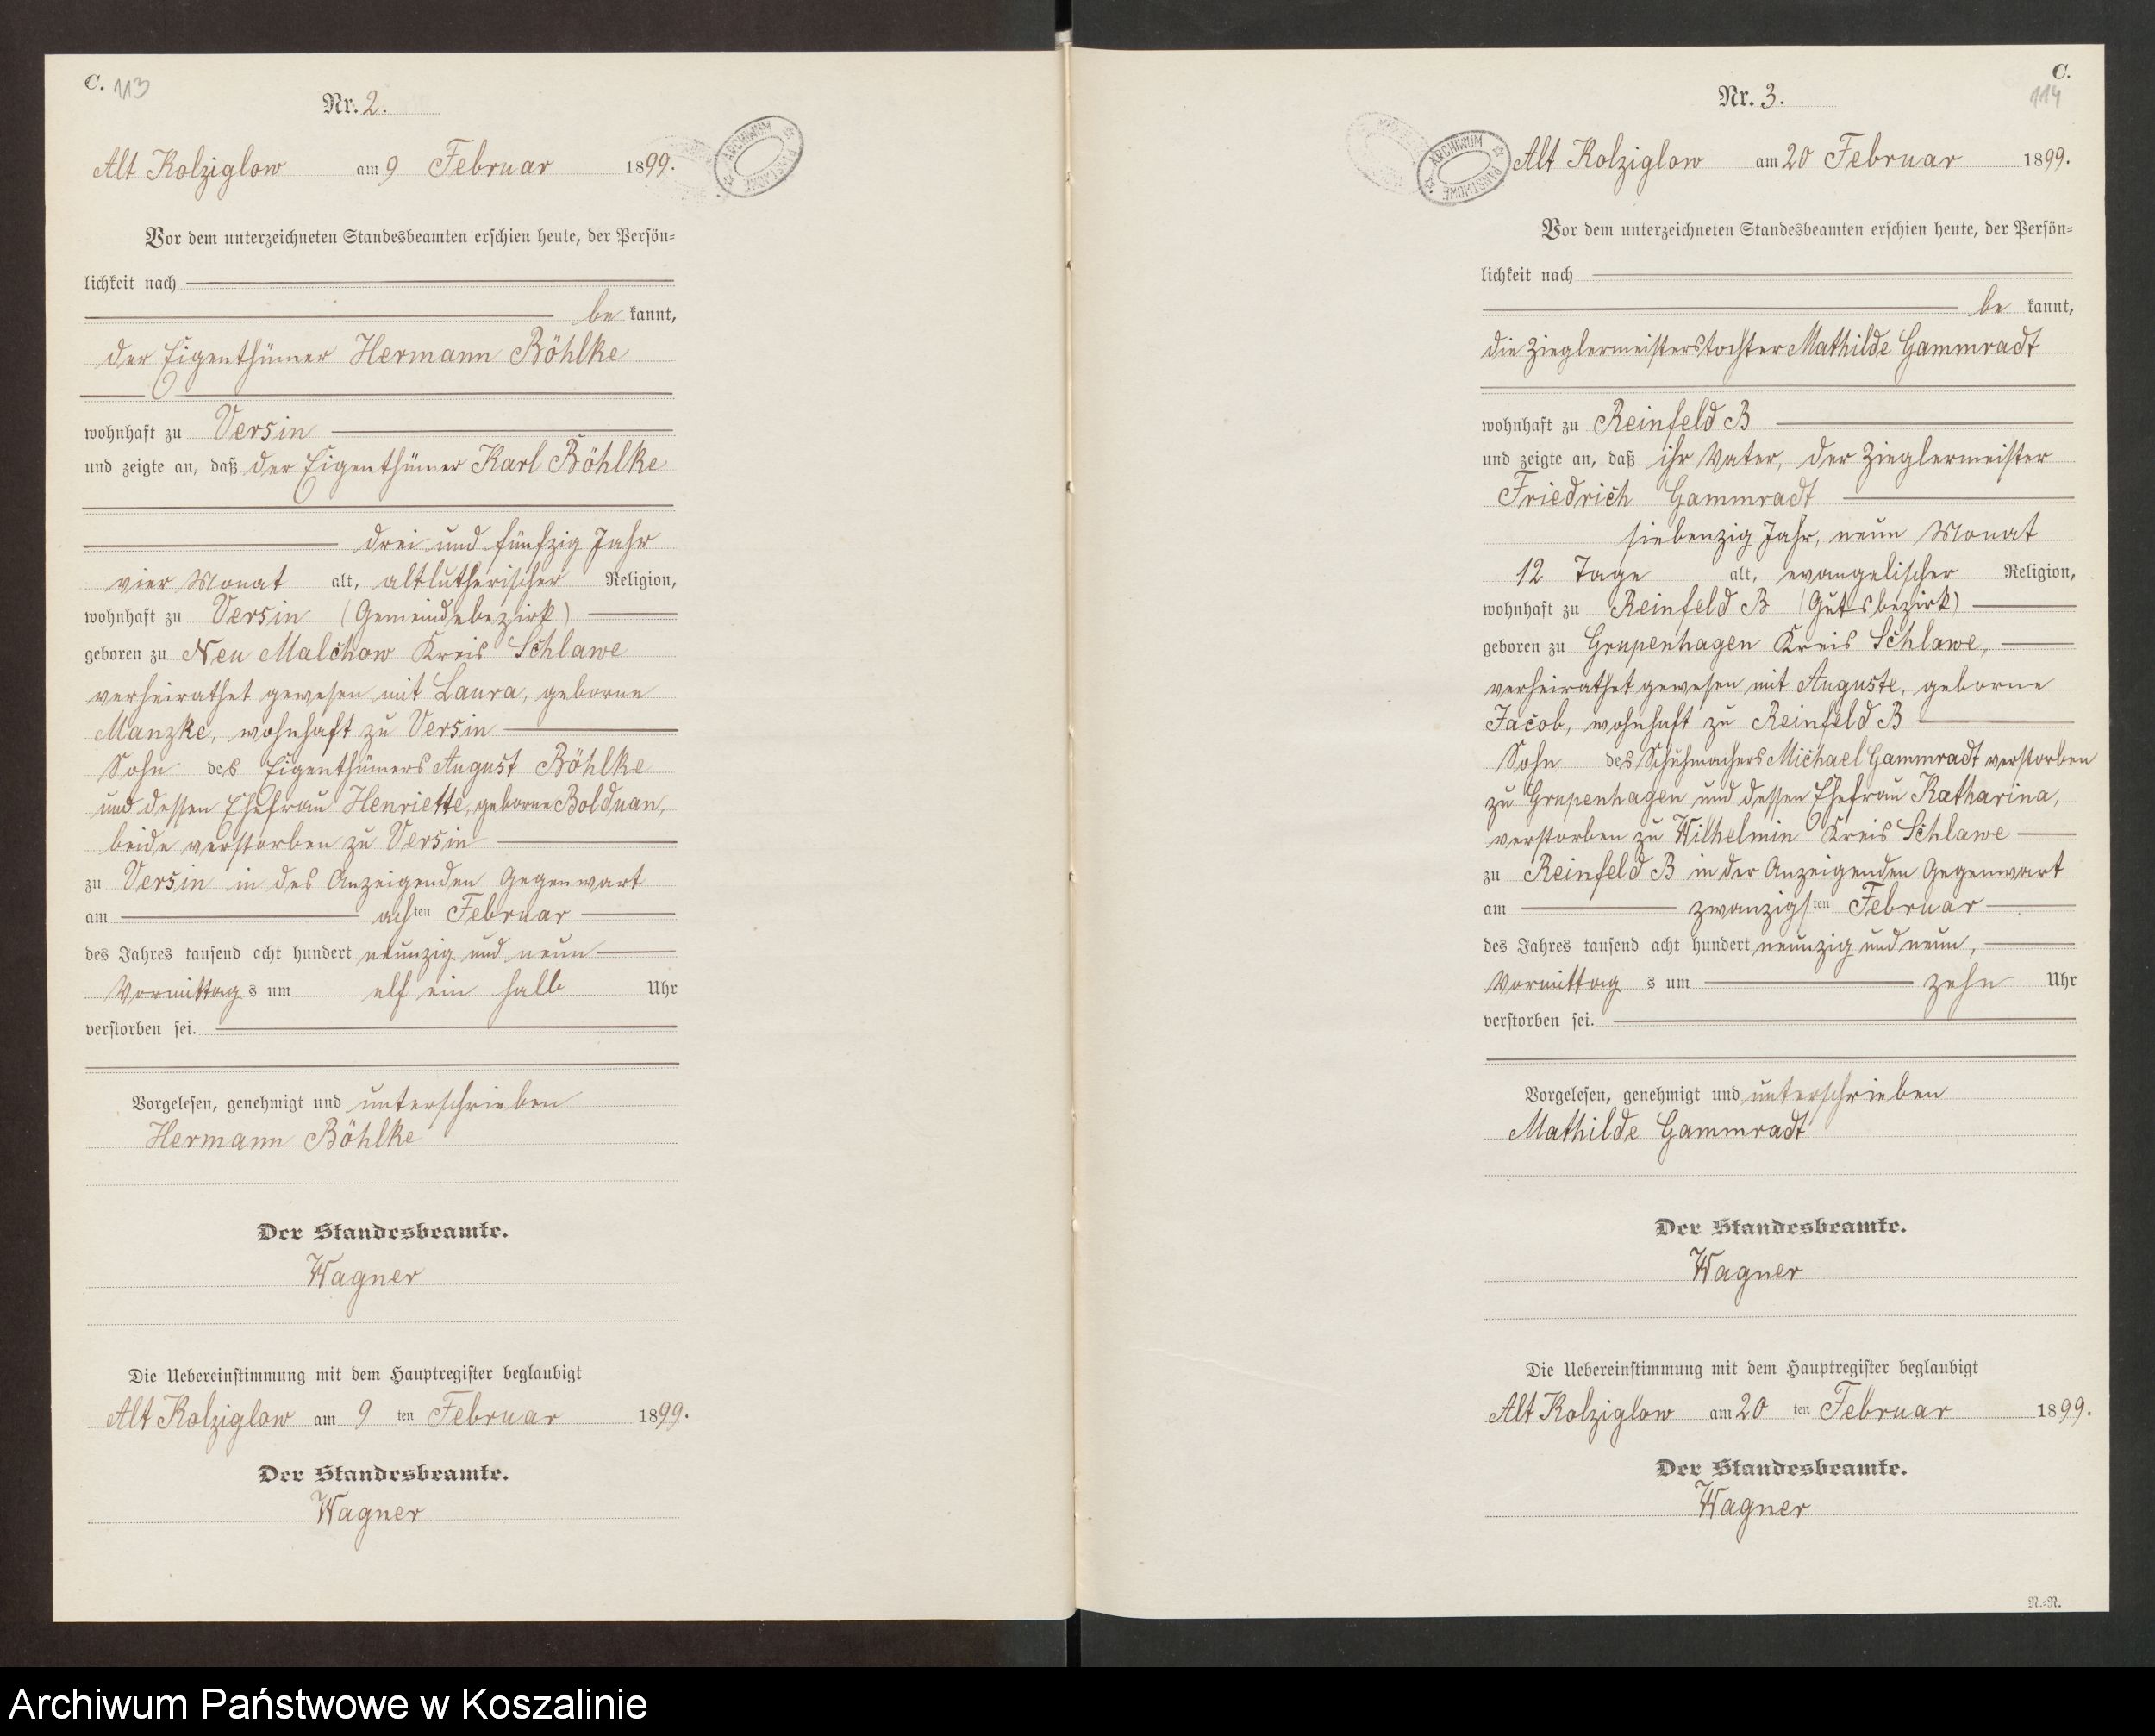 C. 113
Nr. 2.
ARCHIWUM PAŃSTWOWE
Alt Kolziglow am 9 Februar 1899.
Vor dem unterzeichneten Standesbeamten erschien heute, der Persön=
lichkeit nach
be kannt,
der Eigenthümer Hermann Böhlke
wohnhaft zu Versin
und zeigte an, daß der Eigenthümer Karl Böhlke
drei und fünfzig Jahr
vier Monat alt, altlutherischer Religion,
wohnhaft zu Versin (Gemeindebezirk)
geboren zu Neu Malchow Kreis Schlawe
verheirathet gewesen mit Laura, geborne
Manzke, wohnhaft zu Versin
Sohn des Eigenthümers August Böhlke
und dessen Ehefrau Henriette, geborne Bolduan,
beide verstorben zu Versin
zu Versin in des Anzeigenden Gegenwart
am achten Februar
des Jahres tausend acht hundert neunzig und neun
Vormittag s um elf ein halb Uhr
verstorben sei.
Vorgelesen, genehmigt und unterschrieben
Hermann Böhlke
Der Standesbeamte.
Wagner
Die Uebereinstimmung mit dem Hauptregister beglaubigt
Alt Kolziglow am 9 ten Februar 1899.
Der Standesbeamte.
Wagner
C.
114
Nr. 3.
ARCHIWUM PAŃSTWOWE
Alt Kolziglow am 20 Februar 1899.
Vor dem unterzeichneten Standesbeamten erschien heute, der Persön=
lichkeit nach
be kannt,
die Zieglermeisterstochter Mathilde Gammradt
wohnhaft zu Reinfeld B
und zeigte an, daß ihr Vater, der Zieglermeister
Friedrich Gammradt
siebenzig Jahr, neun Monat
12 Tage alt, evangelischer Religion,
wohnhaft zu Reinfeld B (Gutsbezirk)
geboren zu Grupenhagen Kreis Schlawe,
verheirathet gewesen mit Auguste, geborne
Jacob, wohnhaft zu Reinfeld B
Sohn des Schuhmachers Michael Gammradt verstorben
zu Grupenhagen und dessen Ehefrau Katharina,
verstorben zu Wilhelmin Kreis Schlawe
zu Reinfeld B in der Anzeigenden Gegenwart
am zwanzigsten Februar
des Jahres tausend acht hundert neunzig und neun,
Vormittag s um zehn Uhr
verstorben sei.
Vorgelesen, genehmigt und unterschrieben
Mathilde Gammradt
Der Standesbeamte.
Wagner
Die Uebereinstimmung mit dem Hauptregister beglaubigt
Alt Kolziglow am 20 ten Februar 1899.
Der Standesbeamte.
Wagner
N.=R.
Archiwum Państwowe w Koszalinie